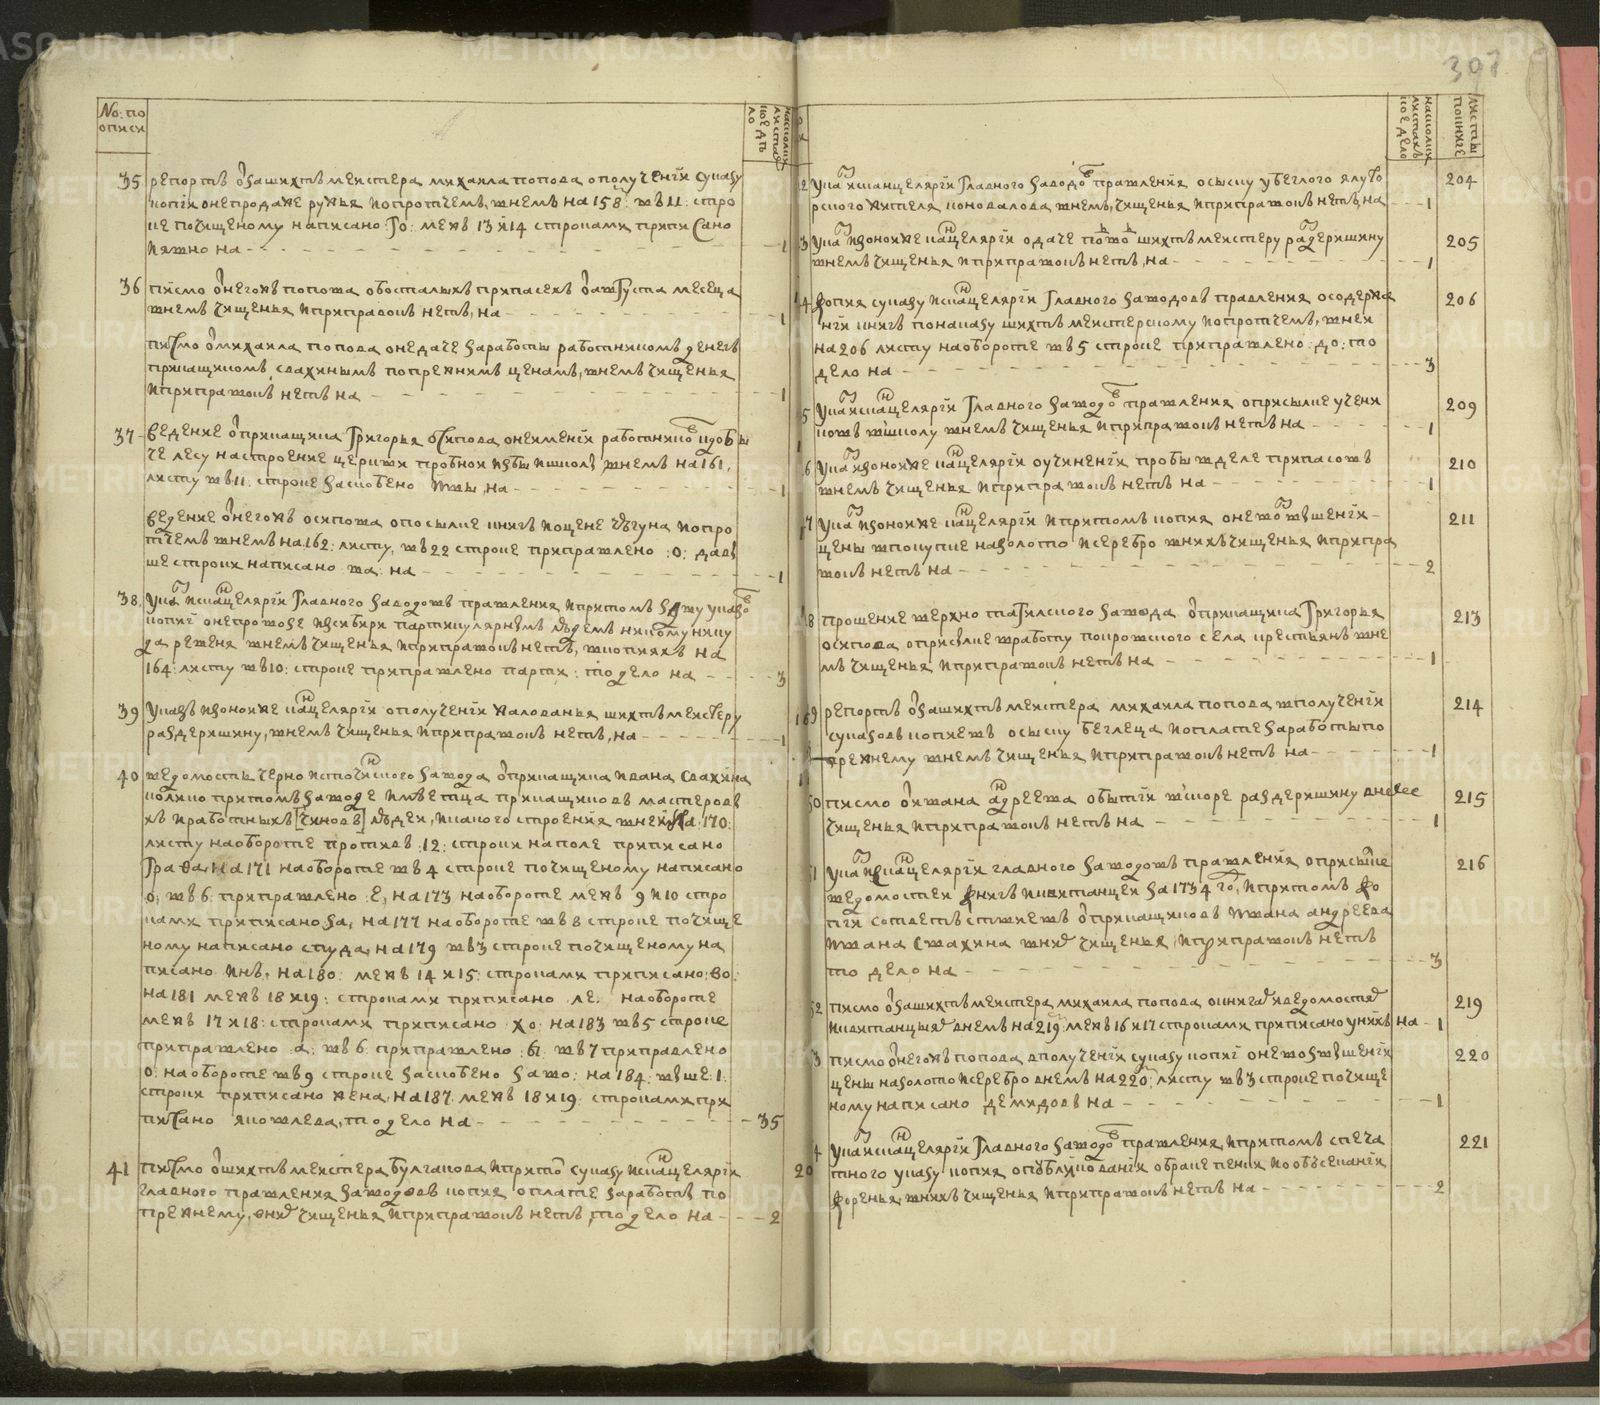 397
No: по
описи
35 репортъ ѡ ѕашихтъмеистера михаила попова ополученіи суказу
копіи онепродаже ружья попротчемъ, внемъ на 158: въ 11: стро
ке почищеному написано: Го: межъ 13 и 14 строками приписано
нужно на 1
36 писмо ѡнегожъ попова обосталыхъ припасехъ ѡавгуста месеца
внемъ чищенья иприправокъ нетъ, на 1
писмо ѡмихаила попова онедаче заработы работникомъ денегъ
прикащикомъ, свахинымъ попрежнимъ ценамъ, внемъ чищенья
иприправокъ нетъ на 1
37 ведение ѡприкащика Григорья осипова онеименіи работникѡ
че лесу настроение церкви пробнои избы ишколъ внемъ на 161,
листу въ 11: строке заскоблено на 1
ведение ѡнегожъ осипова опосылке книгъ ицене чугуна ипро
тчемъ внемъ на 162: листу, въ 22 строке приправлено :о: да въ
ше строки написано ва: на 1
38. Указъ исканцеляріи Главного заводовъ правления ипритомъ указѡ
копиі онепровозе исибири партикулярнымъ людемъ никому
ревеня внемъ чищенья иприправокъ нетъ, вкопияхъ на
164: листу въ 10: строке приправлено парти: то дело на 3
39 Указъ изконские канцеляріи ополученіи жалованья шихтъмеистеру
раздеришину, внемъ чищенья иприправокъ нетъ, на 1
40 ведомость черно источинского завода ѡприкащика ивана свахина
колико притомъ заводе имеетца прикащиковъ мастеровъ
хъ иработныхъ [чиновъ] людеи, ивсякого строения внеи на 170:
листу наобороте противъ :12: строки наполе приписано
права, на 171 наобороте въ 4 строке почищеному написано
о; въ 6. приправлено :е, на 173 наобороте межъ 9 и 10 стро
ками приписано за, на 177 наобороте въ 8 строке почище
ному написано скуда, на 179 въ 3 строке почищеному на
писано инъ, на 180: межъ 14 и 15: строками приписано: во:
на 181 межъ 18 и 19: строками приписано ле: наобороте
межъ 17 и 18: строками приписано :хо: на 183 въ 5 строке
приправлено :а: въ 6. приправлено :б: въ 7 приправлено
о: наобороте въ 9 строке заскоблено заво: на 184: выше: 1:
строки приписано жена, на 187. межъ 18 и 19: строками при
писано яковлева, то дело на 35
41 писмо ѡшихтъмеистера булгакова ипритѡ суказу исканцеляріи
главного правления заводовъ копия оплате заработъ по
прежнему, вних чищенья иприправокъ нетъ, то дело на 2
листы
покниге
2 Указ исканцеляріи Главного заводѡ правления осыску убеглого ялуто
рского жителя коновалова внемъ, чищенья иприправокъ нетъ, на 1 204
3 Указ изконские канцеляріи одаче шихтъмеистеру раздеришину
внемъ чищенья иприправокъ нетъ, на 1 205
4 копия суказу исканцеляріи Главного заводовъ правления осодержа
нии книгъ понаказу шихтъмеистерскому ипротчемъ, внеи
на 206 листу наобороте въ 5 строке приправлено: до: то
дело на 3 206
5 Указ исканцеляріи Главного заводѡ правления оприсылке учени
ковъ вшколу внемъ чищенья иприправокъ нетъ на 1 209
6 Указ изконские канцеляріи оучиненіи пробы вделе припасовъ
внемъ чищенья иприправокъ нетъ на 1 210
7 Указ изконские канцеляріи ипритомъ копия
цены впокупке назолото исеребро внихъ чищенья иприпра
вокъ нетъ на 2 211
8 прошение верхно тагилского завода ѡприкащика Григорья
осипова оприсылке вработу покровского села крестьянъ вне
мъ чищенья иприправокъ нетъ на 1 213
9 репортъ ѡ ѕашихтъмеистера михаила попова вполученіи
суказовъ копиевъ осыску беглеца иплате заработы по
прежнему внемъ чищенья иприправокъ нетъ на 1 214
50 писмо ѡивана андреева обытіи вскоре раздеришину
чищенья иприправокъ нетъ на 1 215
51 Указ исканцеляріи главного заводовъ правления оприсылке
ведомостеи книгъ иквитанцеи за 1734 гѡ, ипритомъ ко
пии ѡприкащиковъ ивана андреева
ивана свахина вних чищенья, иприправокъ нетъ
то дело на 3 216
52 писмо ѡ ѕашихтъмеистера михаила попова окнигах иведомостях
иквитанцыях внемъ на 219: межъ 16 и 17 строками приписано уних на 1 219
3 писмо ѡнегожъ попова вполученіи суказу копиі
цены назолото исеребро внемъ на 220: листу въ 3 строке почище
ному написано демидовъ на 1 220
4 Указ исканцеляріи Главного заводѡ правления, ипритомъ спеча
тного указу копия опубликованіи
внихъ чищенья иприправокъ нетъ на 2 221